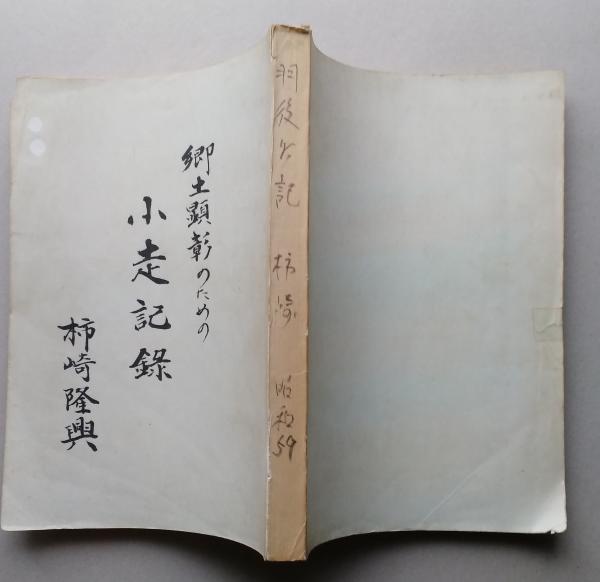 郷土顕彰のための
小走記録
柿崎隆興
羽後 記 柿崎 昭和59